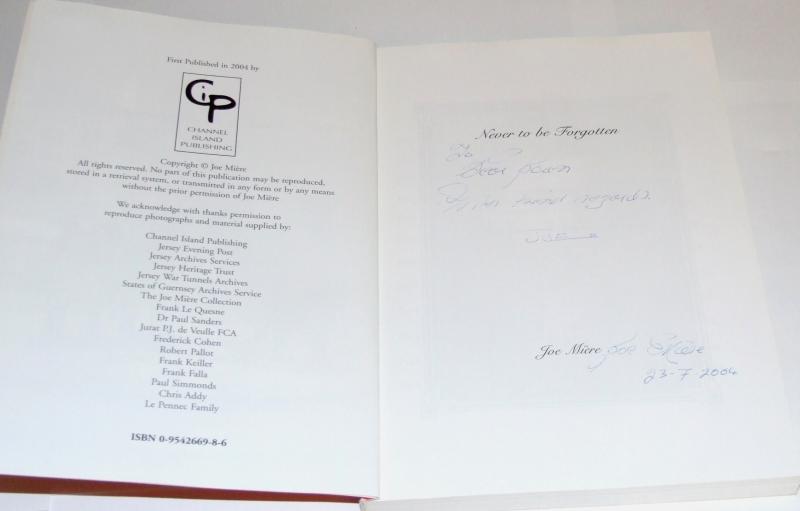 First Published in 2004 by
CiP
CHANNEL
ISLAND
PUBLISHING
Copyright © Joe Mière
All rights reserved. No part of this publication may be reproduced,
stored in a retrieval system, or transmitted in any form or by any means
without the prior permission of Joe Mière
We acknowledge with thanks permission to
reproduce photographs and material supplied by:
Channel Island Publishing
Jersey Evening Post
Jersey Archives Services
Jersey Heritage Trust
Jersey War Tunnels Archives
States of Guernsey Archives Service
The Joe Mière Collection
Frank Le Quesne
Dr Paul Sanders
Jurat P.J. de Veulle FCA
Frederick Cohen
Robert Pallot
Frank Keiller
Frank Falla
Paul Simmonds
Chris Addy
Le Pennec Family
ISBN 0-9542669-8-6
Never to be Forgotten
To
kind regards.
JOE
Joe Mière Joe Mière
23-7-2004